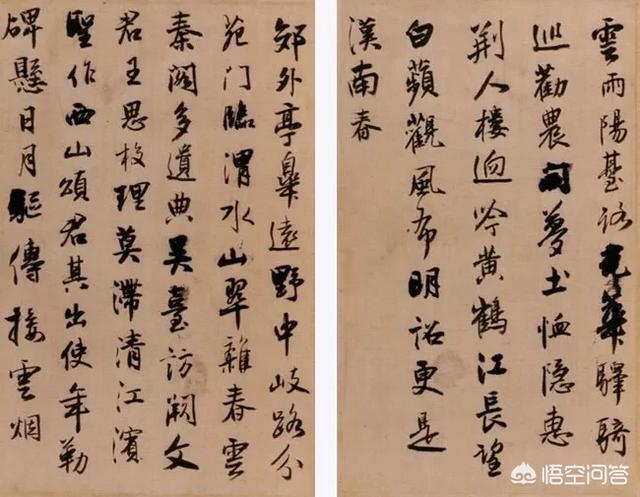 雲雨陽臺路光華驛騎
巡勸農開夢土恤隱惠
荆人樓迥吟黄鶴江長望
白蘋觀風布明詔更是
漢南春
郊外亭皋遠野中岐路分
苑門臨渭水山翠雜春雲
秦閣多遺典吴臺訪闕文
君王思校理莫滯清江濱
聖作西山頌君其出使年勒
碑懸日月驅傳接雲烟
悟空问答